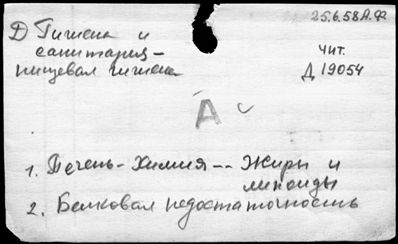 25.6.58 А.Ф
Д Гигиена и
санитария –
пищевая гигиена
чит.
Д 19054
А
1. Печень – Химия -- Жиры и
липоиды
2. Белковая недостаточность